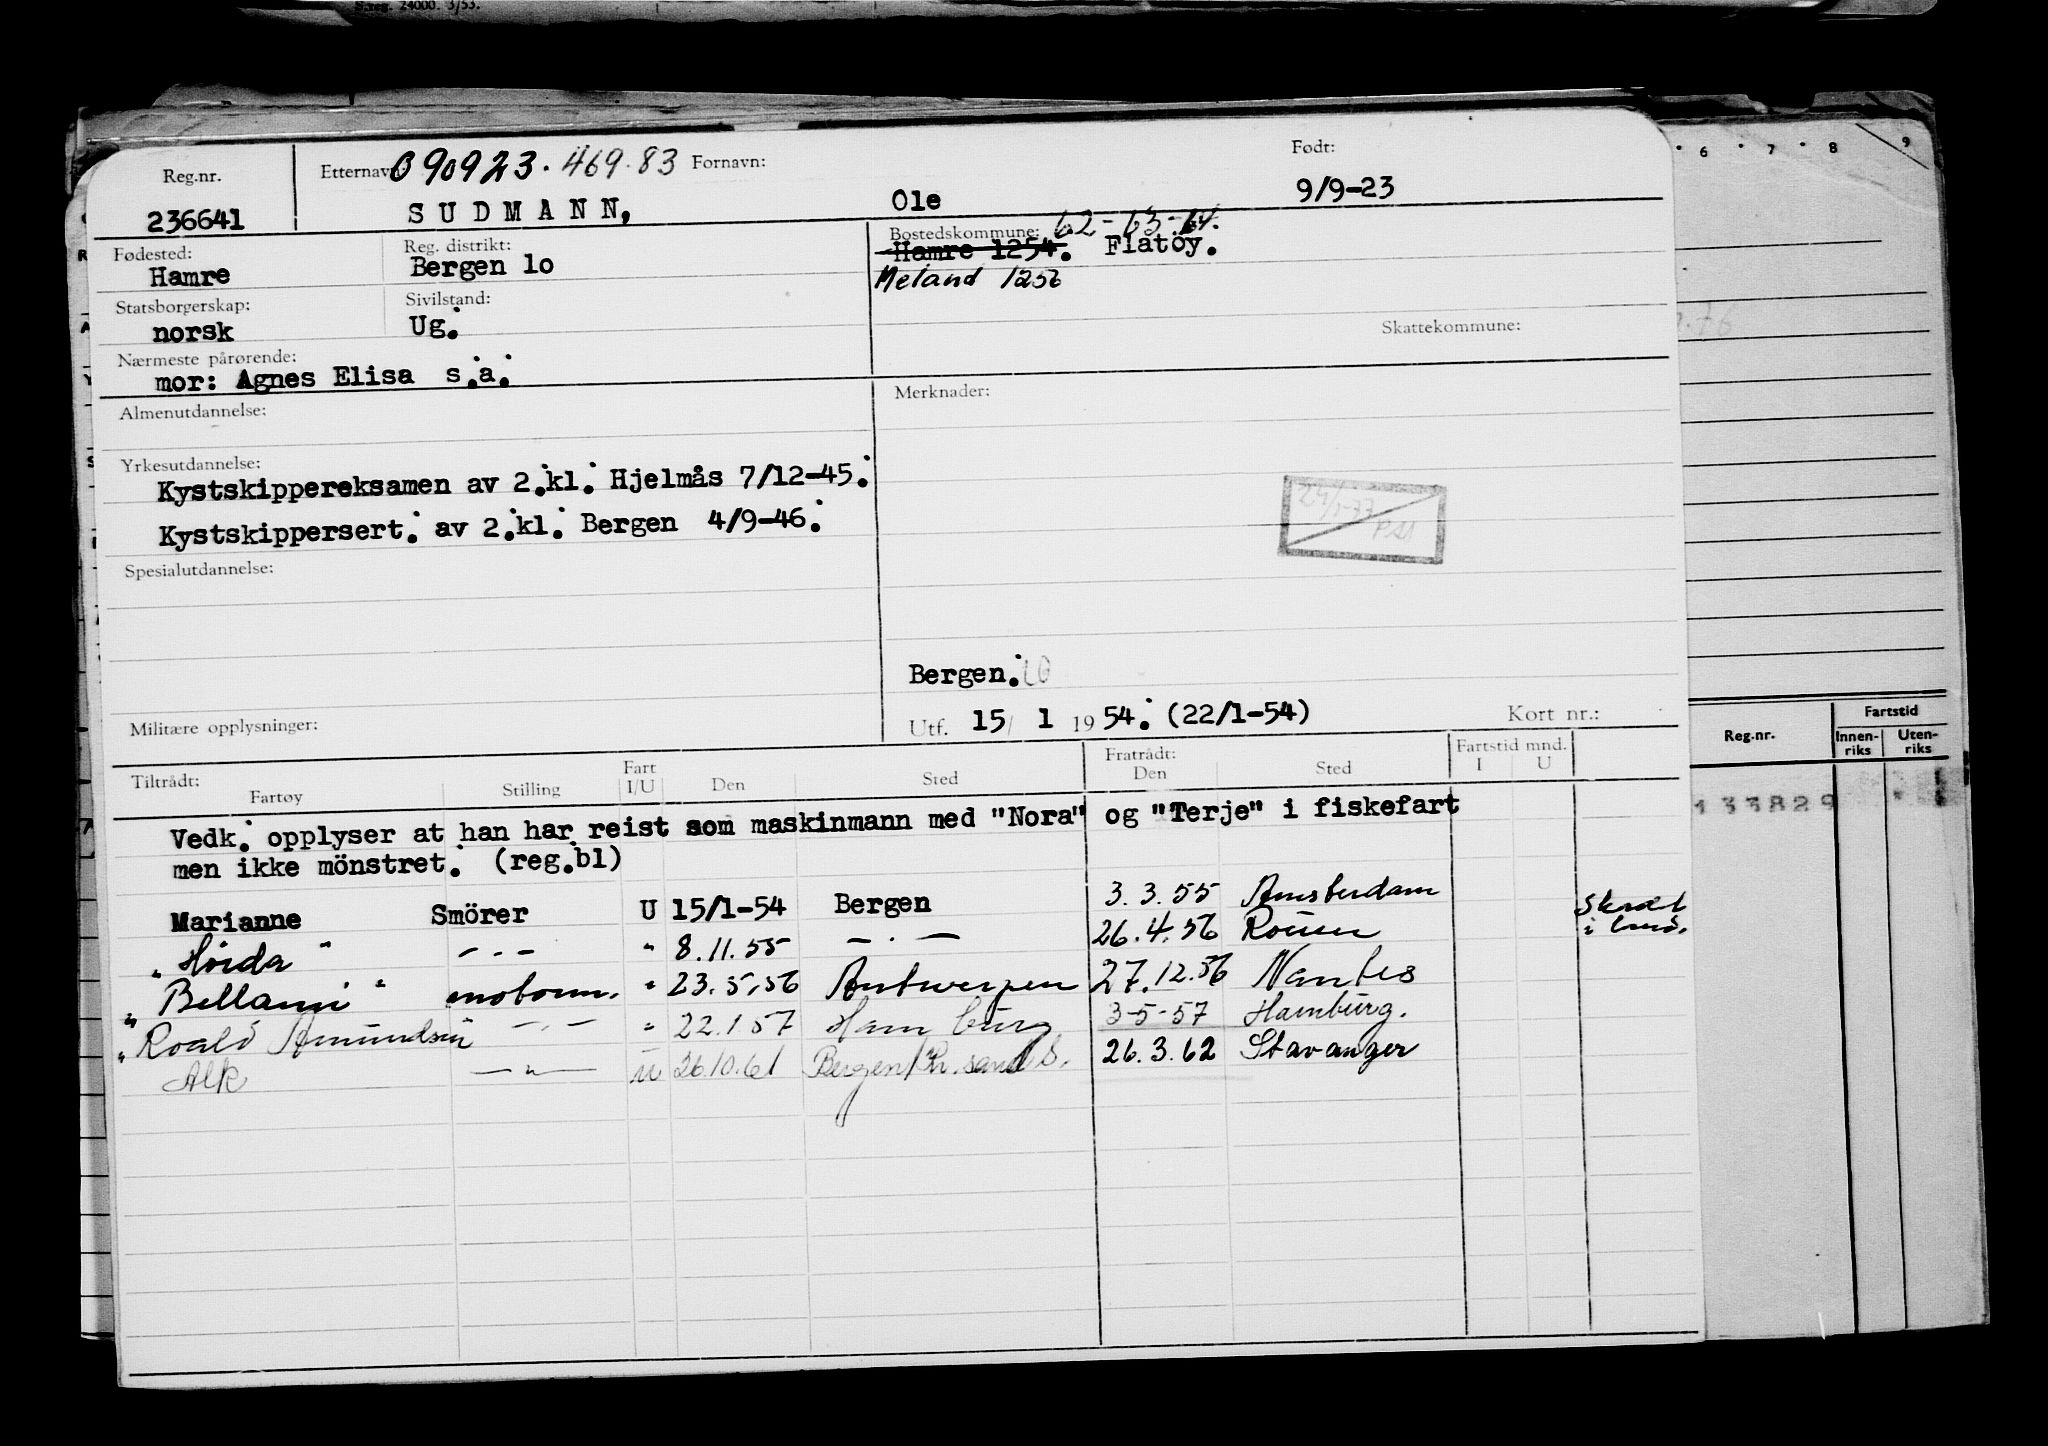 S.reg. 24000. 3/53.
Reg.nr. Etternavn: 090923.469.83 Fornavn: Født:
236641 SUDMANN, Ole 9/9-23
Fødested: Reg. distrikt: Bostedskommune: 62-63-64.
Hamre Bergen 1o Hamre 1254. Flatöy.
Meland 1256
Statsborgerskap: Sivilstand:
norsk Ug. Skattekommune:
Nærmeste pårørende:
mor: Agnes Elisa s.a.
Almenutdannelse: Merknader:
Yrkesutdannelse:
Kystskippereksamen av 2.kl. Hjelmås 7/12-45.
Kystskippersert. av 2.kl. Bergen 4/9-46.
Spesialutdannelse:
Bergen. 10
Militære opplysninger: Utf. 15/ 1 1954. (22/1-54) Kort nr.:
Tiltrådt: Fratrådt: Fartstid mnd.
Fartøy Stilling Fart I/U Den Sted Den Sted I U
Vedk. opplyser at han har reist som maskinmann med "Nora" og "Terje" i fiskefart
men ikke mönstret. (reg.bl)
Marianne Smörer U 15/1-54 Bergen 3.3.55 Amsterdam
"Horda" - . - " 8.11.55 - . - 26.4.56 Rouen
"Bellami" motorm. " 23.5.56 Antwerpen 27.12.56 Nantes
"Roald Amundsen - . - " 22.1 57 Hamburg 3-5-57 Hamburg.
Alk - " - U 26.10.61 Bergen/Kr.sand S. 26.3.62 Stavanger
6 7 8 9
Reg.nr. Fartstid
Innen-riks Uten-riks
133829